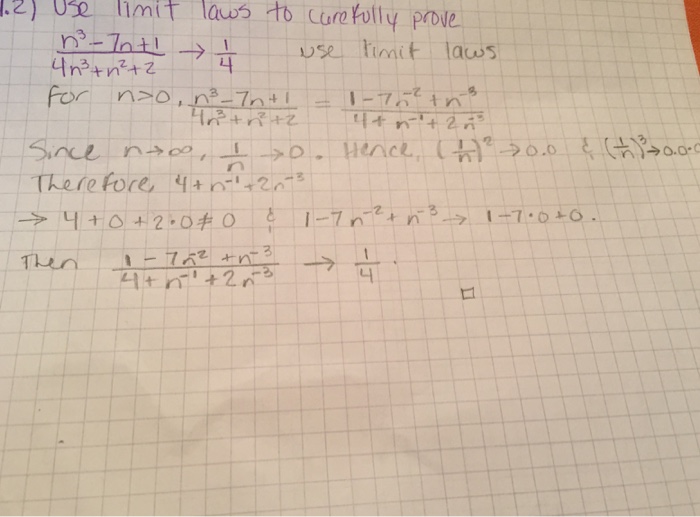 1.2) Use limit laws to carefully prove
n³-7n+1 / 4n³+n²+2 → 1/4 use limit laws
For n>0, n³-7n+1 / 4n³+n²+2 = 1-7n⁻²+n⁻³ / 4+n⁻¹+2n⁻³
Since n→∞, 1/n →0. Hence, (1/n)² →0.0 & (1/n)³→0.0.0
Therefore, 4+n⁻¹+2n⁻³
→ 4+0+2·0≠0 & 1-7n⁻²+n⁻³ → 1-7·0+0.
Then 1-7n⁻²+n⁻³ / 4+n⁻¹+2n⁻³ → 1/4.